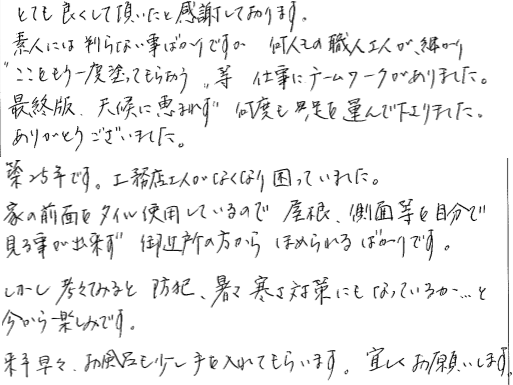 とても良くして頂いたと感謝しております。
素人には判らない事ばかりですが 何人もの職人工人が、細かり
"ここもう一度塗ってもらおう"等 仕事にチームワークがありました。
最終版、天候に恵まれず 何度も足を運んで下さりました。
ありがとうございました。
築25年です。工務店さんがなくなり困っていました。
家の前面をタイル使用しているので 屋根、側面等を自分で
見る事が出来ず 御近所の方から ほめられるばかりです。
しかし 考えてみると 防犯、暑さ寒さ対策にもなっているか…と
今から楽しみです。
来年早々、お風呂も少し手を入れてもらいます。宜しくお願いします。